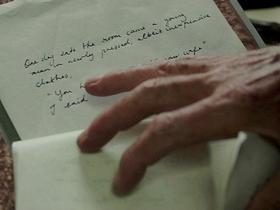 One day into the room came a young
man in newly pressed, albeit inexpensive
clothes.
"You wife"
of said